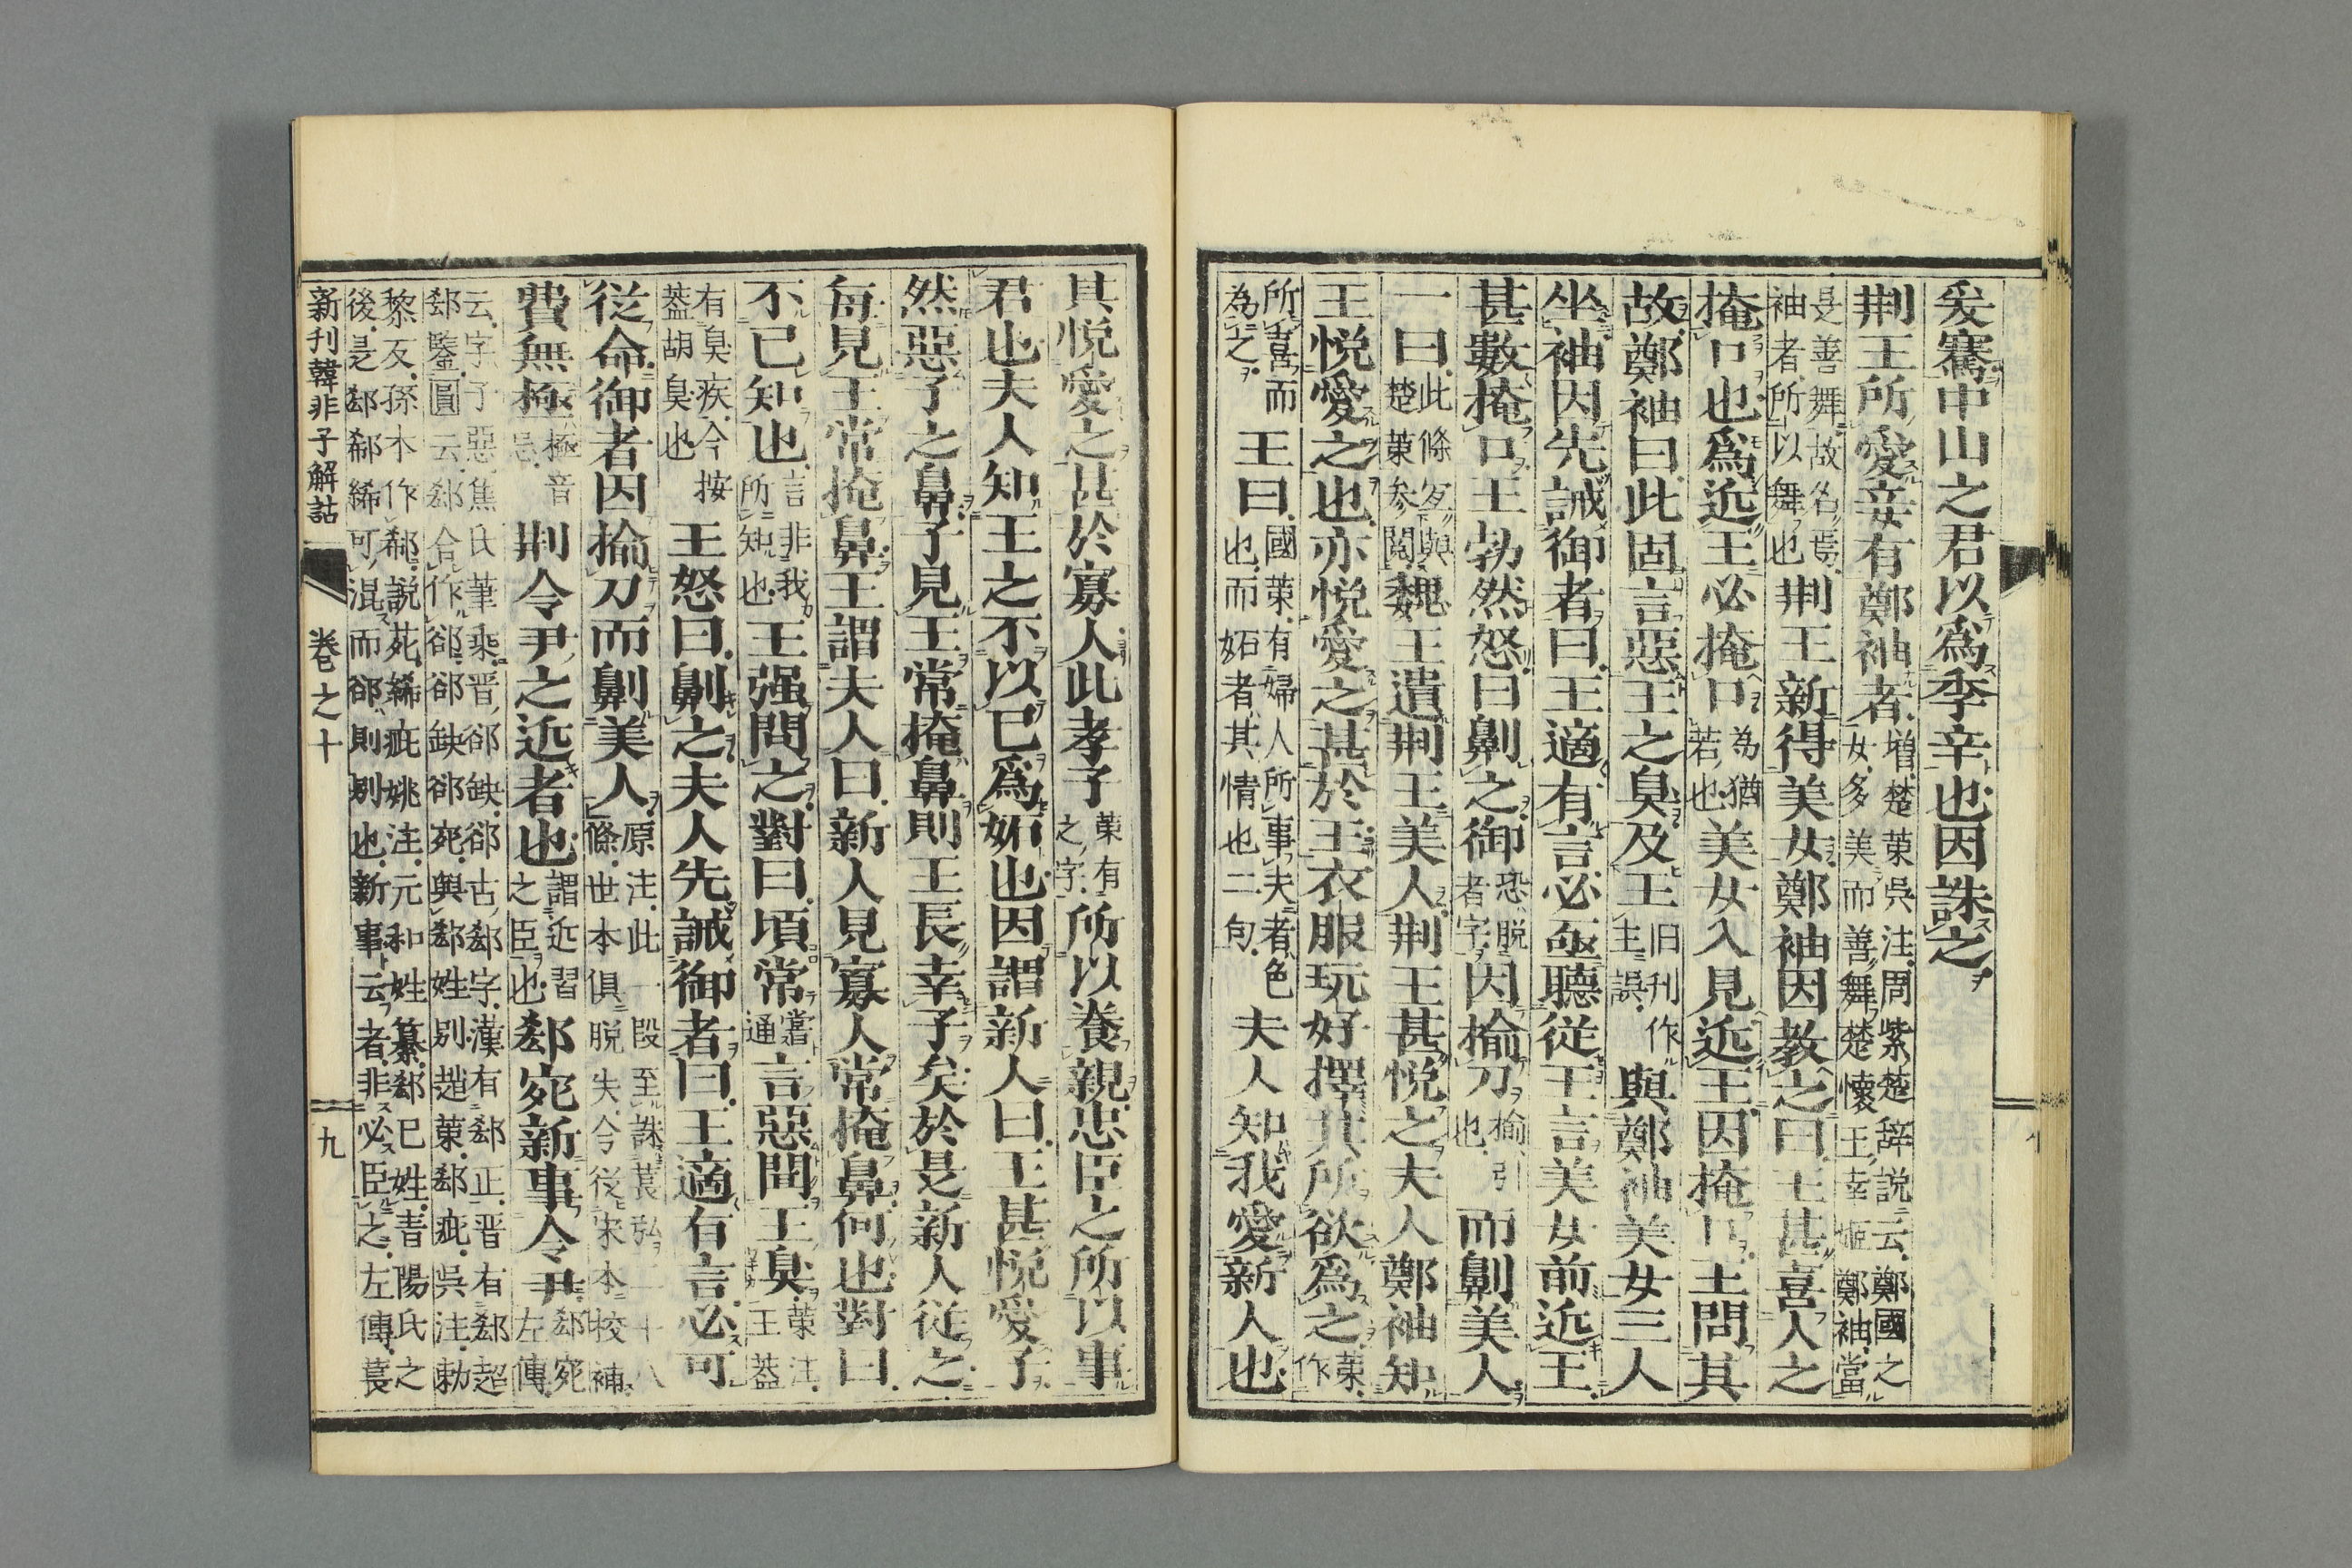 爰騫中山之君以爲季辛也因誅之
荆王所愛妾有鄭袖者增楚策吳注周紫楚辞説云鄭國之女多美而善舞楚懷王幸姬鄭袖當
是善舞故名焉袖者所以舞也荆王新得美女鄭袖因教之曰王甚喜人之
掩口也爲近王必掩口為猶若也美女入見近王因掩口王問其
故鄭袖曰此固言惡王之臭及王旧刊作主誤與鄭袖美女三人
坐袖因先誡御者曰王適有言必亟聽從王言美女前近王
甚數掩口王勃然怒曰劓之御恐脱者字因揄刀揄引也而劓美人
一曰此條宜與楚策参閲魏王遺荆王美人荆王甚悦之夫人鄭袖知
王悦愛之也亦悦愛之甚於王衣服玩好擇其所欲爲之策作
所喜而為之王曰國策有婦人所事夫者色也而妬者其情也二句夫人知我愛新人也
其悦愛之甚於寡人此孝子策有之字所以養親忠臣之所以事
君也夫人知王之不以已爲妬也因謂新人曰王甚悦愛子
然惡子之鼻子見王常掩鼻則王長幸子矣於是新人從之
每見王常掩鼻王謂夫人曰新人見寡人常掩鼻何也對曰
不已知也言非我所知也王强問之對曰頃常嘗通言惡聞王臭策注王葢
有臭疾今按葢胡臭也王怒曰劓之夫人先誡御者曰王適有言必可
從命御者因揄刀而劓美人原注此一段至誅萇弘二十八條世本俱脱失今從宋本校補
費無極極音忌荆令尹之近者也謂近習之臣也郄宛新事令尹郄宛左傳
云字子惡焦氏筆乘晋郤缺郤古郄字漢有郄正晋有郄超郄鑒圓云郄合作郤郤缺郤宛與郄姓别趙策郄疵吳注勅
黎反孫本作郗説苑絺疵姚注元和姓纂郄已姓青陽氏之後是郄郗絺可混而郤則别也新事云者非必臣之左傳萇
新刊韓非子解詁　卷之十　九